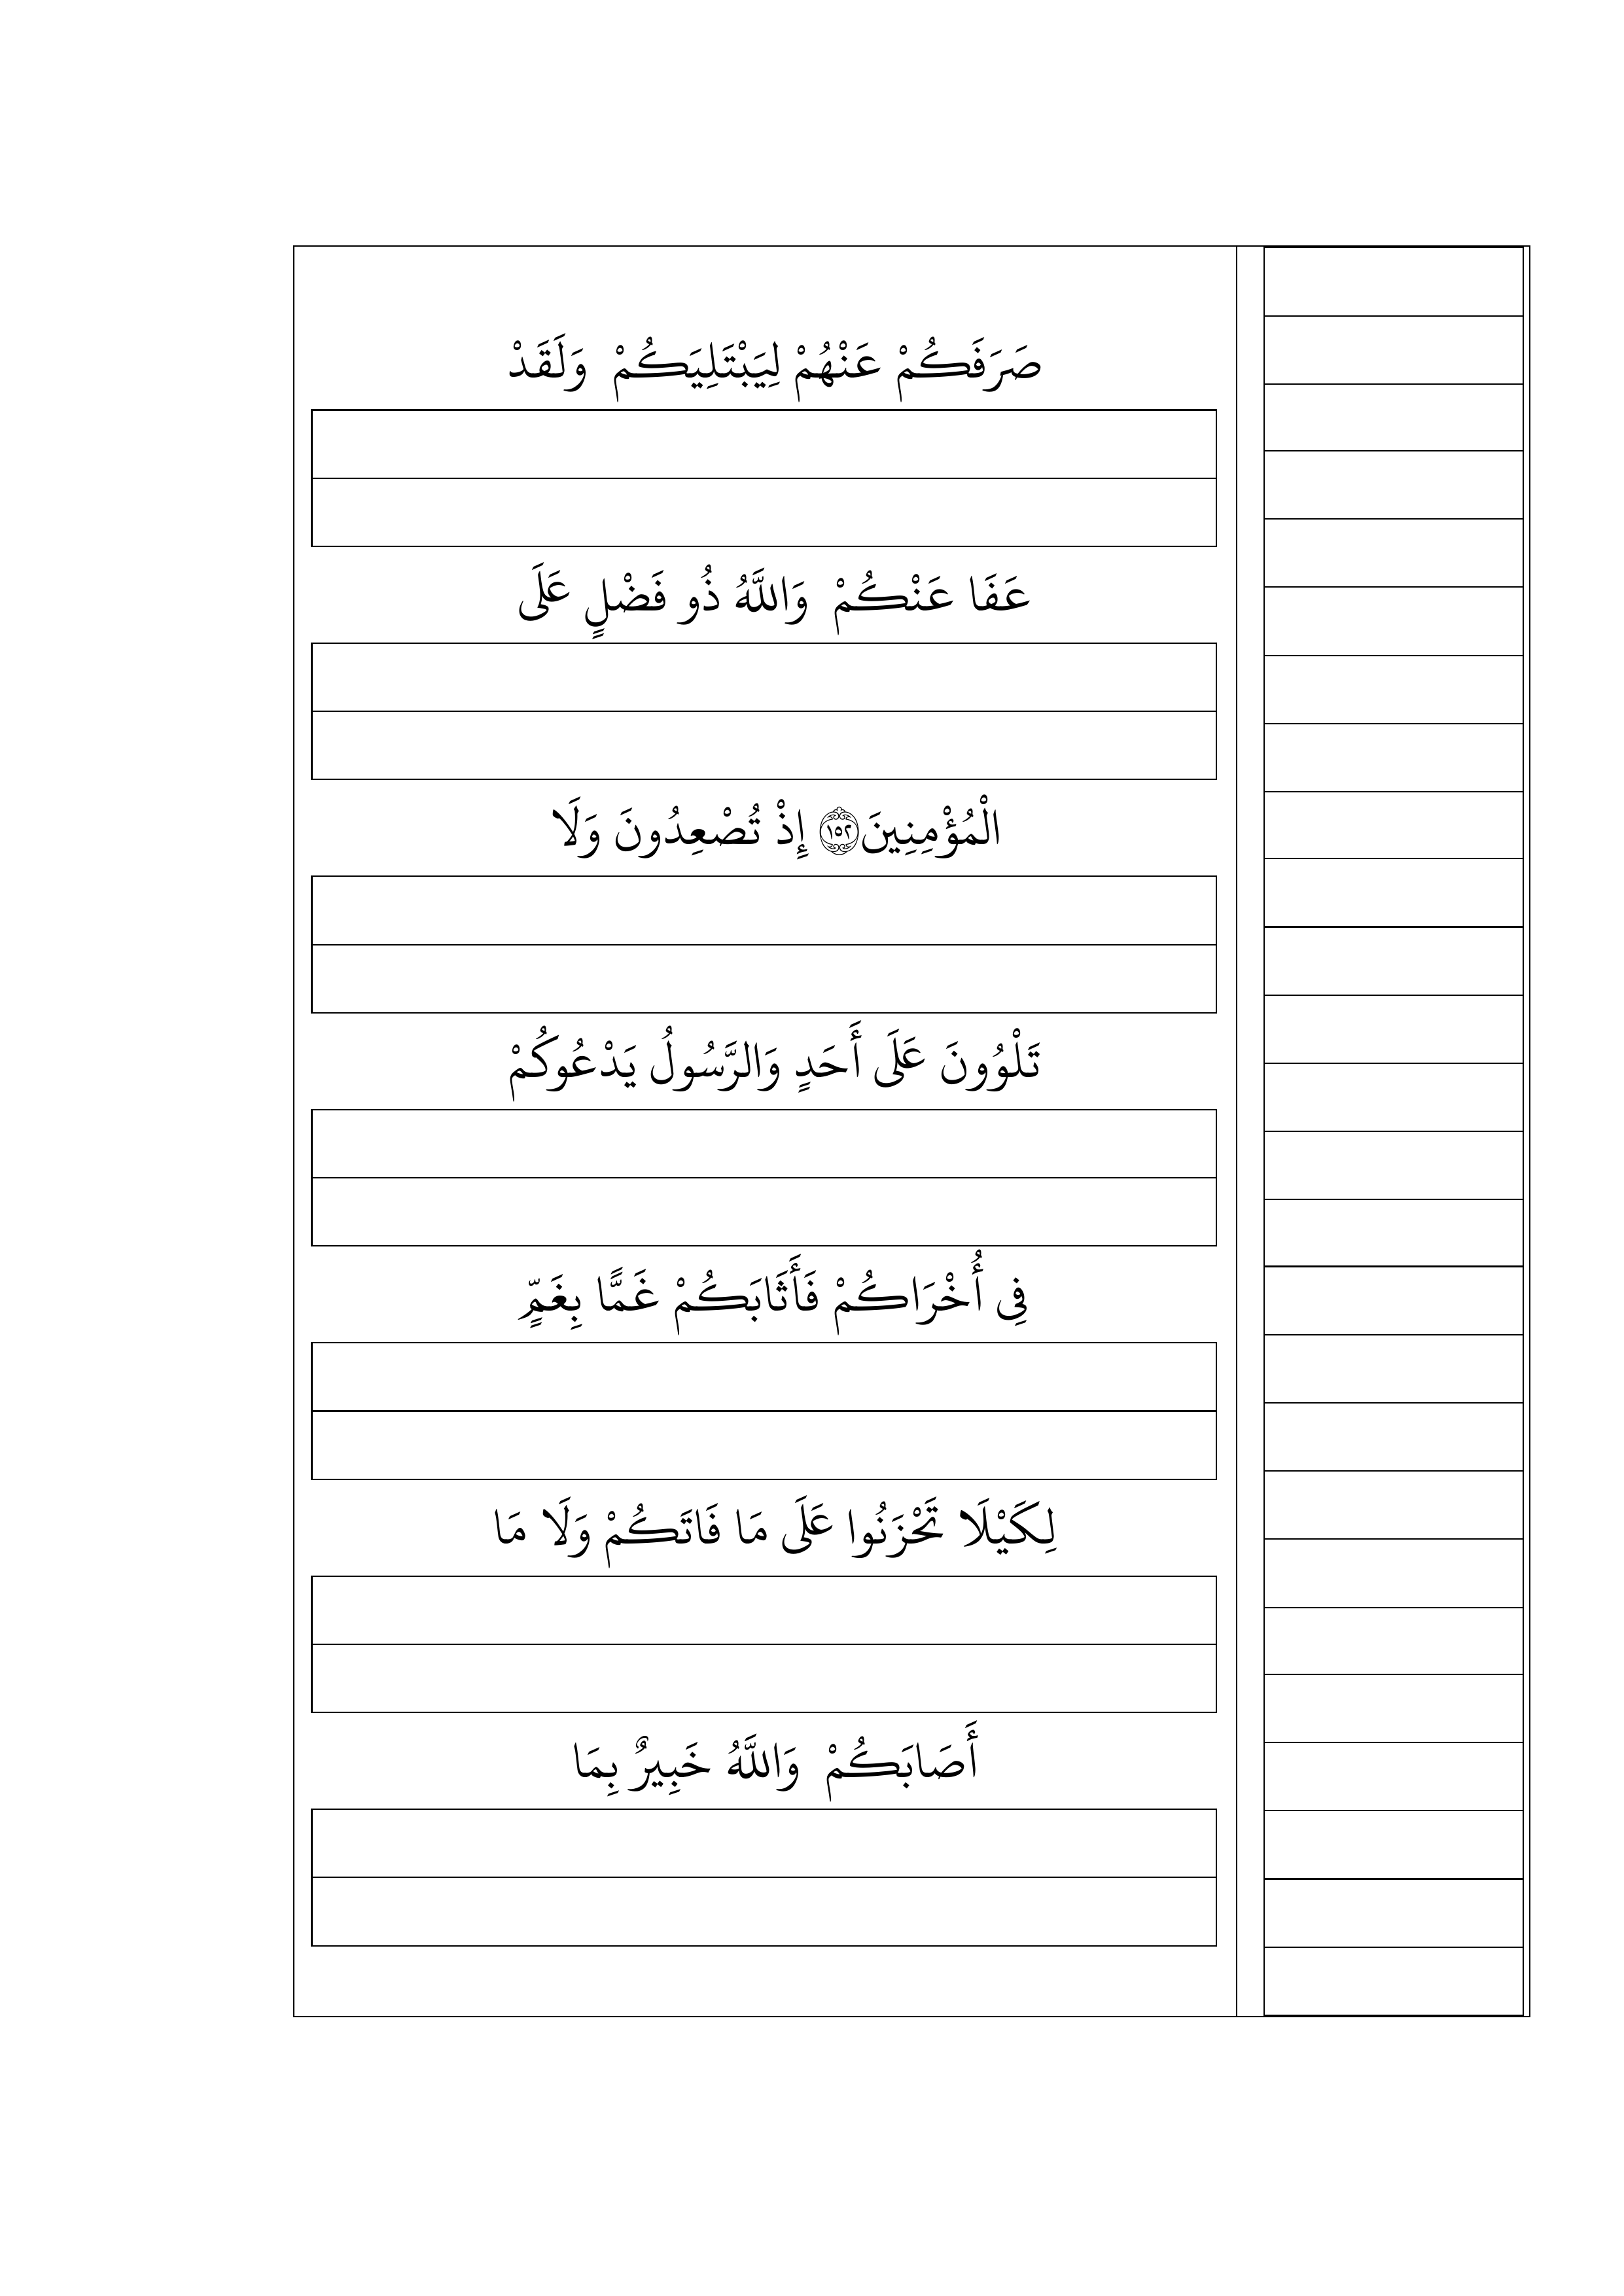 صَرَفَكُمْ عَنْهُمْ لِيَبْتَلِيَكُمْ وَلَقَدْ
عَفَا عَنْكُمْ وَاللَّهُ ذُو فَضْلٍ عَلَى
الْمُؤْمِنِينَ ١٥٢ إِذْ تُصْعِدُونَ وَلَا
تَلْوُونَ عَلَى أَحَدٍ وَالرَّسُولُ يَدْعُوكُمْ
فِي أُخْرَاكُمْ فَأَثَابَكُمْ غَمًّا بِغَمٍّ
لِكَيْلَا تَحْزَنُوا عَلَى مَا فَاتَكُمْ وَلَا مَا
أَصَابَكُمْ وَاللَّهُ خَبِيرٌ بِمَا